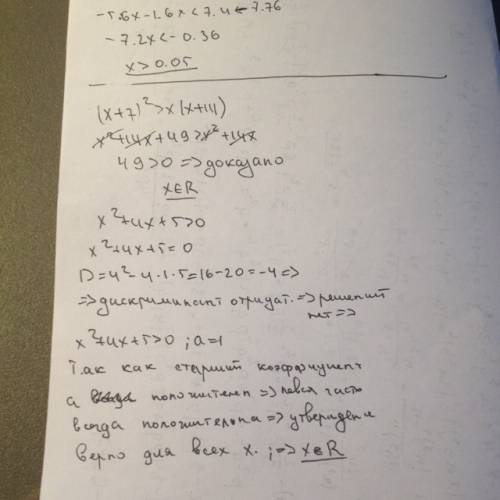 -5.6x-1.6x<7.4-7.76
-7.2x<-0.36
x>0.05
(x+7)²>x(x+14)
x²+14x+49>x²+14x
49>0 => доказано
x∈R
x²+4x+5>0
x²+4x+5=0
D=4²-4·1·5=16-20=-4=>
=> дискриминант отрицат. => решений
нет =>
x²+4x+5>0 ; a=1
Так как старший коэффициент
а положителен => левая часть
всегда положительна => утвержден
верно для всех x. ; => x∈R